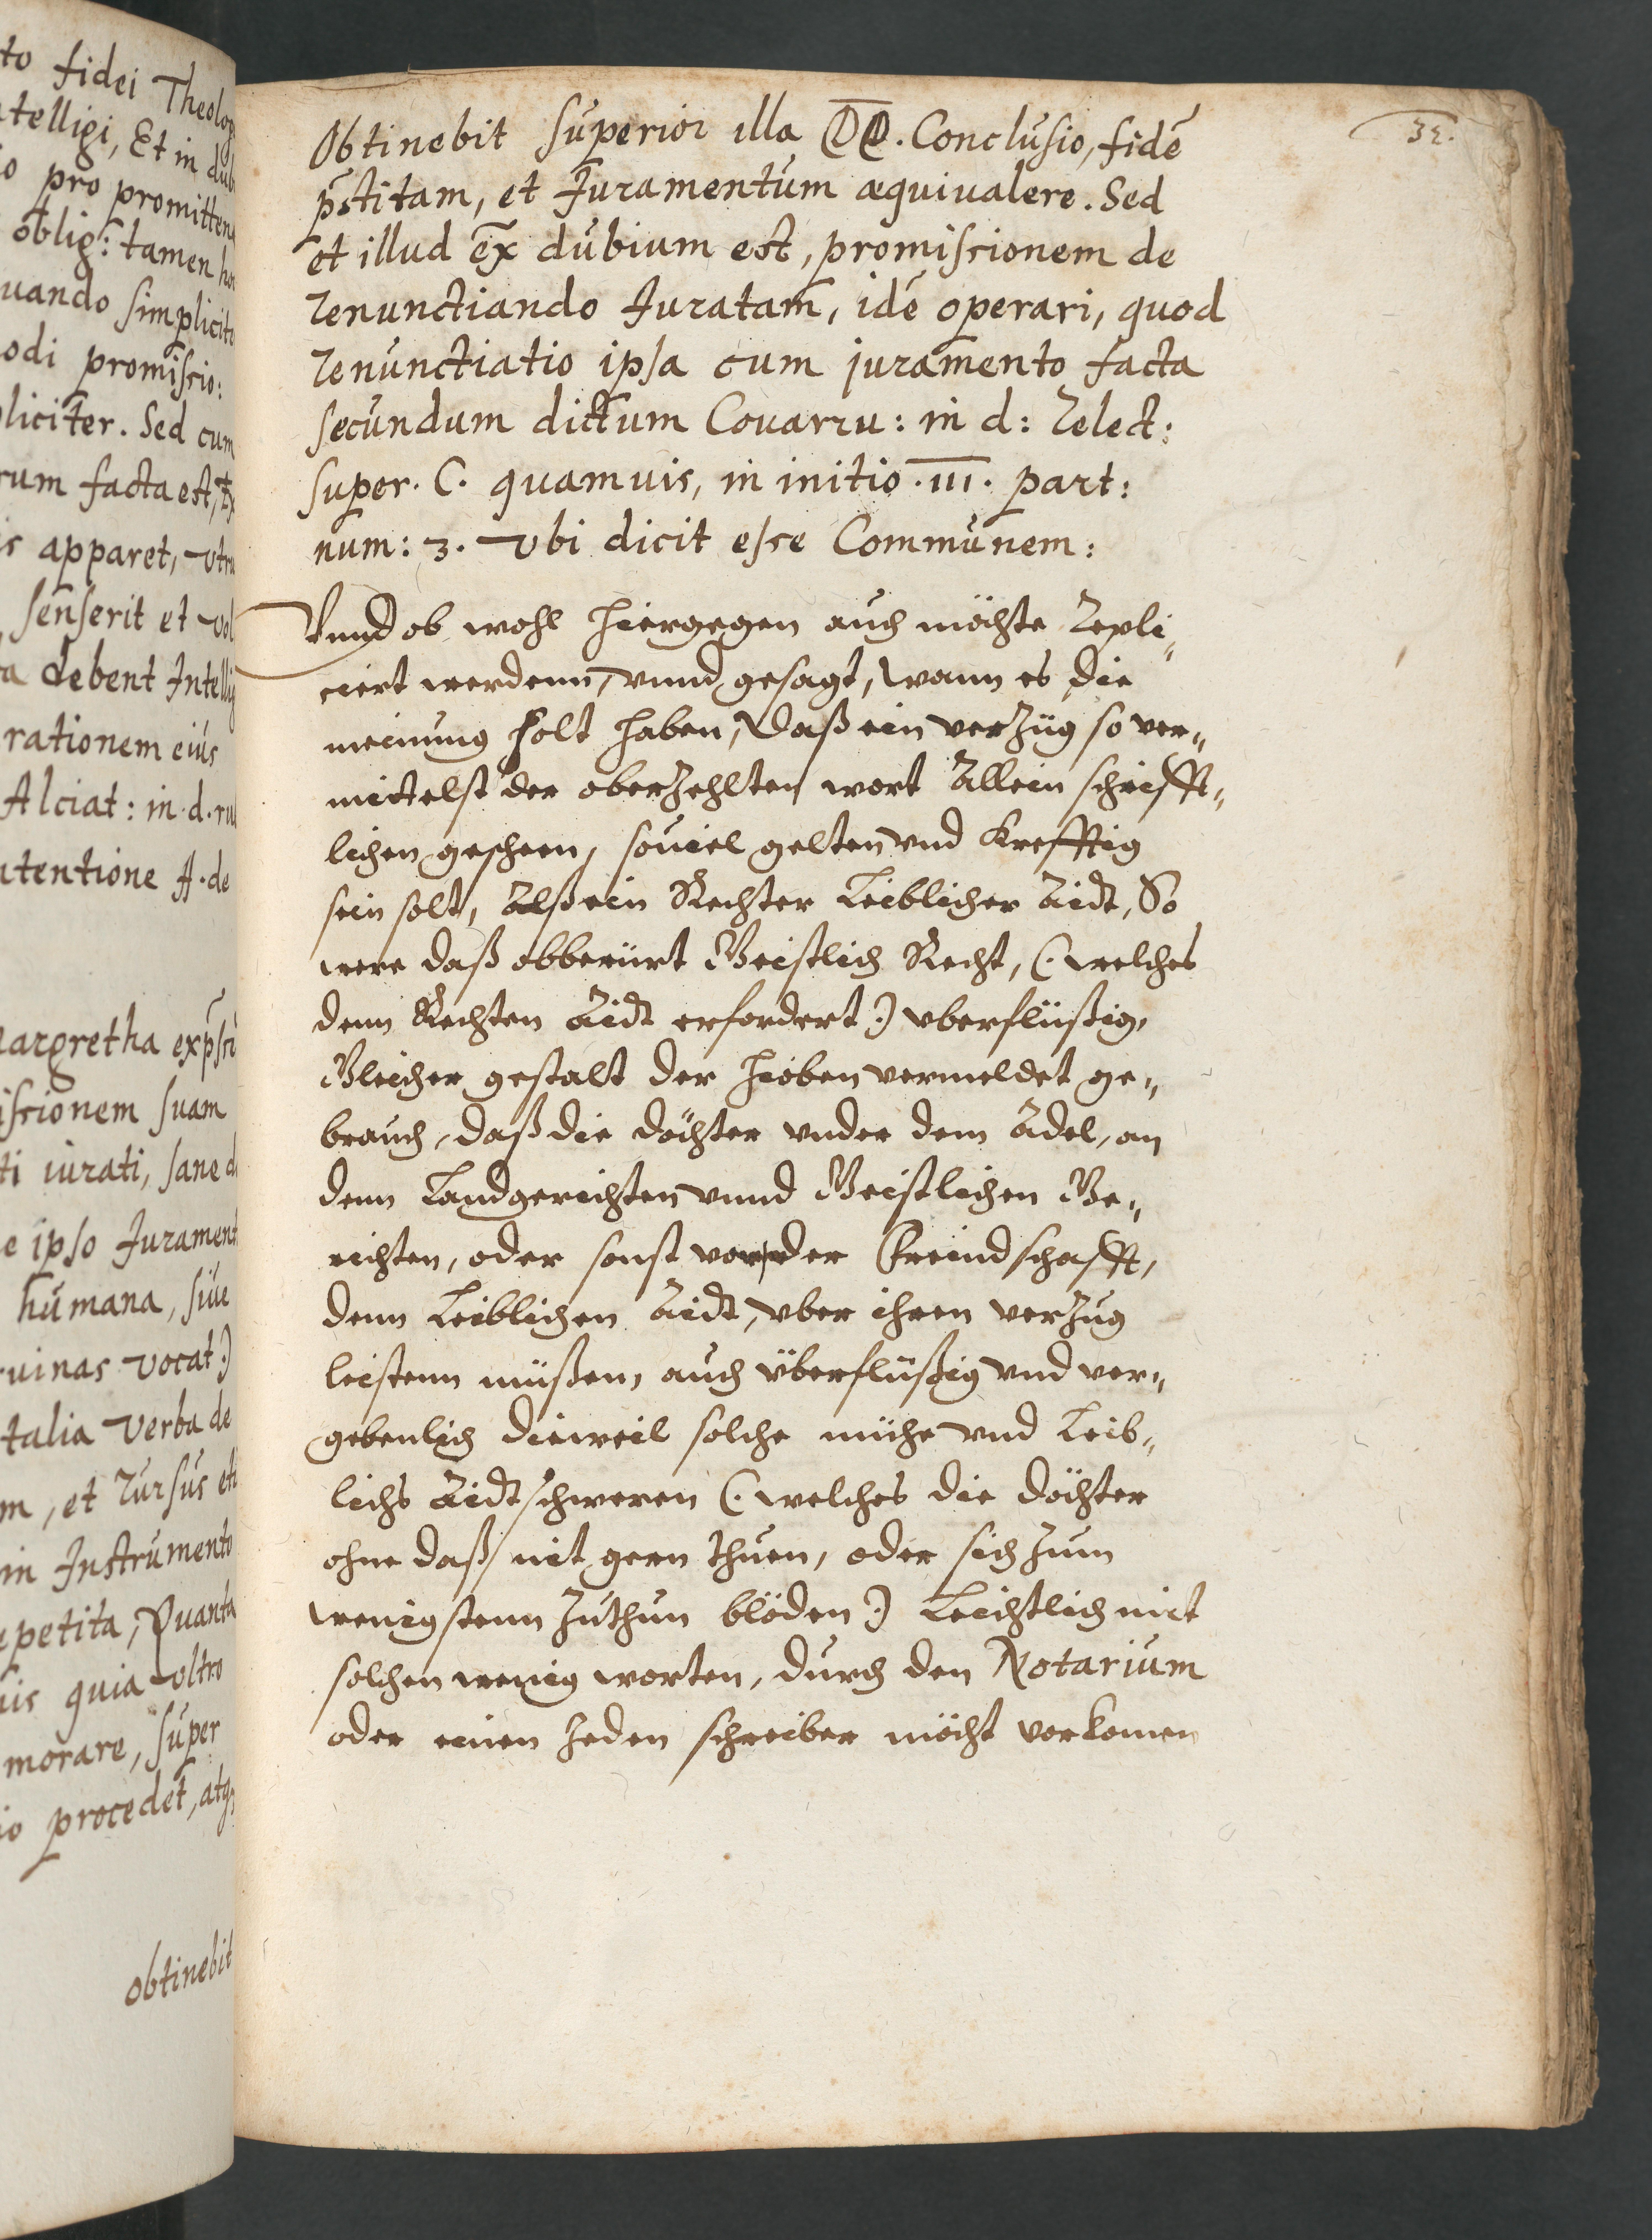 to fidei Theolog
telligi, Et in dub
o pro promitten
oblig: tamen ho
uando simplicit
odi promissio:
pliciter. Sed cum
rum facta est, Ex
is apparet, vtru
senserit et vol
a debent Intellig
rationem eius
Alciat: in d. ru
ntentione ff. de
argretha exp̄ssi
issionem suam
ti iurati, sane d
e ipso Jurament
humana, siue
ruinas vocat:)
talia verba de
m, et rursus eti
in Instrumento
epetita, Quanta
uis quia vltro
morare, super
io procedet, atq
obtinebit
32.
Obtinebit superior illa DD. Conclusio, fidē
p̄stitam, et Juramentum aequiualere. Sed
et illud ex̄ dubium est, promissionem de
renunctiando Juratam, idē operari, quod
renunctiatio ipsa cum juramento facta
secundum dictum Couarru: in d: relect:
super. C. quamuis, in initio .III. part:
num: 3. vbi dicit esse Communem:
Vnnd ob wohl hiergegen auch möchte repli„
ciert werdenn, vnnd gesagt, wann es die
meinung solt haben, daß ein verzüg so ver„
mittelst der oberzehlten wort allein schrifft„
lichen gescheen, souiel gelten vnd krefftig
sein solt, alß ein Rechter Leiblicher Aidt, So
were daß obberürt Geistlich Recht, (: welches
denn Rechten Aidt erfordert :) vberflüßig,
Gleicher gestalt der hieoben vermeldet ge„
brauch, daß die döchter vnder dem Adel, an
denn Landgerichten vnnd Geistlichen Ge„
richten, oder sonst vor der Freindschafft,
denn Leiblichen Aidt, vber ihren verzug
leistenn müßen, auch überflüßig vnd ver„
gebenlich dieweil solche mühe vnd Leib„
lichs Aidtschweren (: welches die döchter
ohne daß nit gern thuen, oder sich zum
wenigstenn zuthun blöden :) Leichtlich mit
solchen wenig worten, durch den Notarium
oder einen Jeden schreiber möcht vorkomen